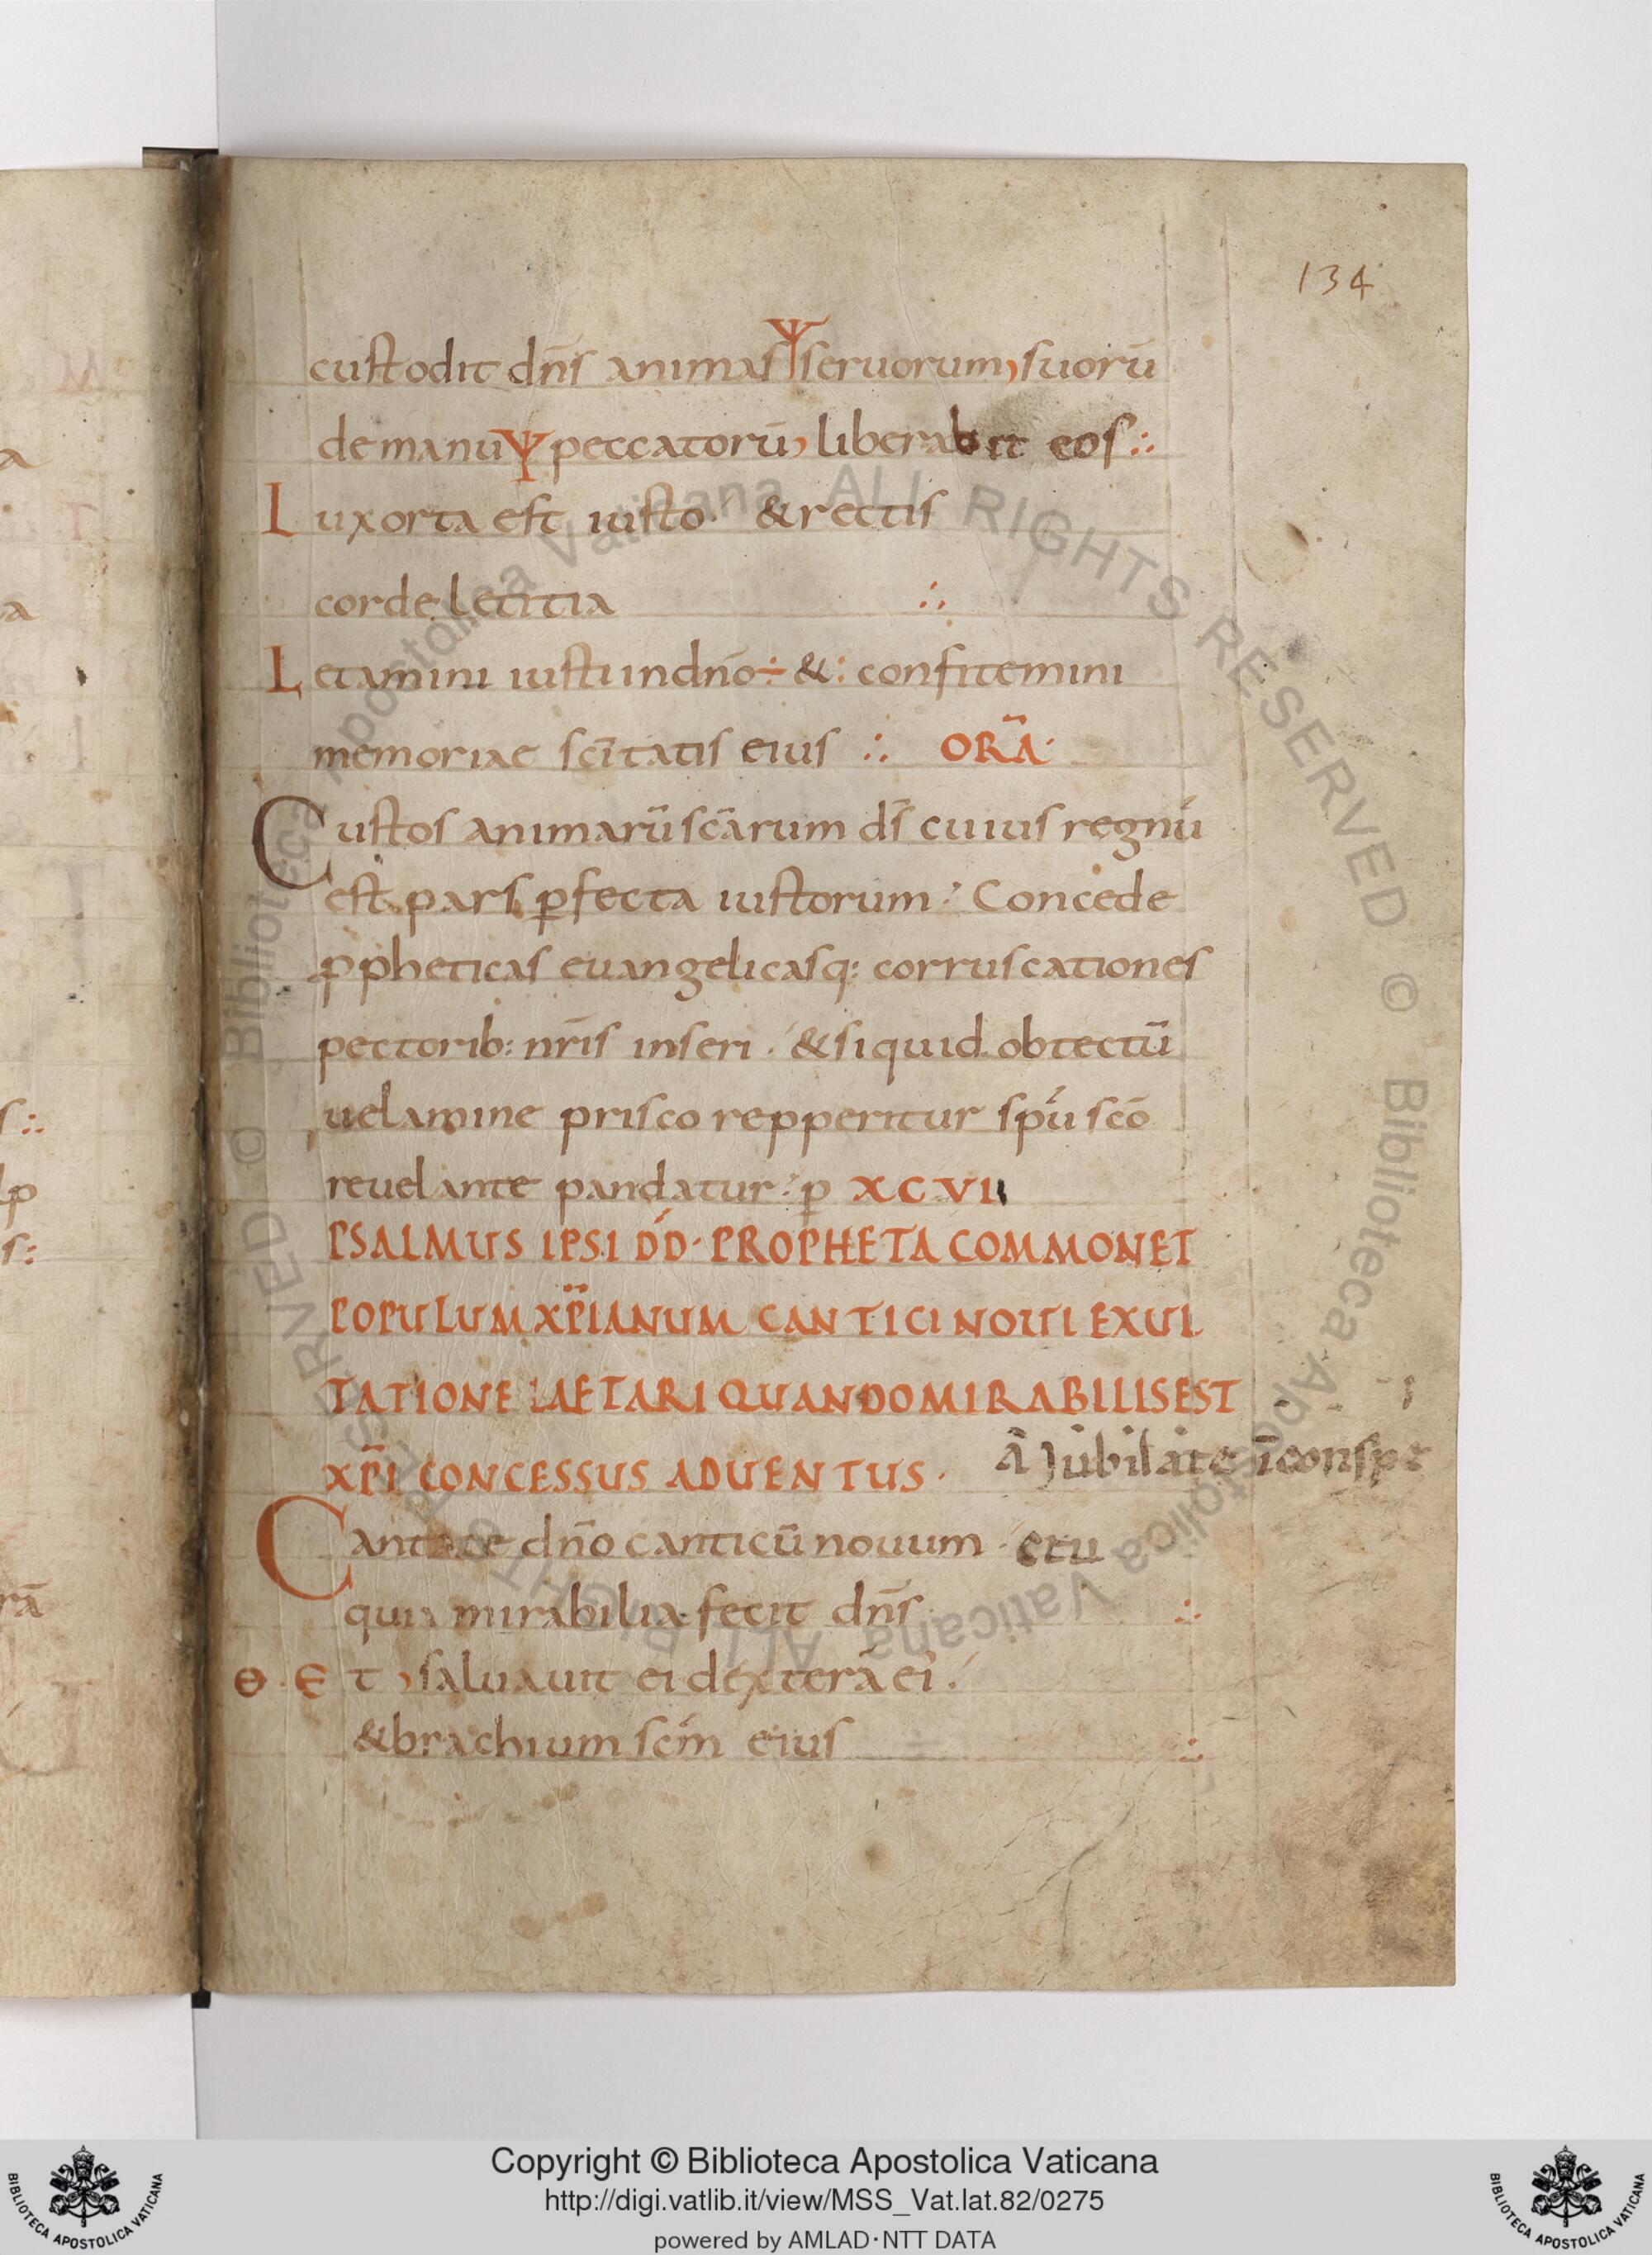 134
custodit dn̄s animas Ψ seruorum, suorū
de manu Ψ peccatorū, liberabit eos ⁖
Lux orta est iusto· & rectis
corde letitia ⁖
Letamini iusti in dn̄o ÷ &: confitemini
memoriae sc̄itatis eius ⁖ ORÃ·
Custos animarū sc̄arum ds̄ cuius regnū
est pars ꝑfecta iustorum·' Concede
ꝓpheticas euangelicasq: corruscationes
pectorib: nr̄is inseri· & si quid obtectū
uelamine prisco repperitur spū sc̄o
reuelante pandatur·' p XCVII
PSALMUS IPSI DD́· PROPHETA COMMONET
POPULUM XP̄IANUM CANTICI NOUI EXUL
TATIONE LAETARI QUANDO MIRABILIS EST
XP̄I CONCESSUS ADUENTUS· Ā Jubilate ī conspe
Cantate dn̄o canticū nouum· ctu
quia mirabilia fecit dn̄s ⁖
Θ· Et, saluauit ei dexterā ei'·
& brachium scm̄ eius ⁖
a
a
s⁖
lp
s:
rā
© Biblioteca Apostolica Vaticana ALL RIGHTS RESERVED © Biblioteca Apostolica Vaticana ALL RIGHTS RESERVED
Copyright © Biblioteca Apostolica Vaticana
http://digi.vatlib.it/view/MSS_Vat.lat.82/0275
powered by AMLAD·NTT DATA
BIBLIOTECA APOSTOLICA VATICANA
BIBLIOTECA APOSTOLICA VATICANA